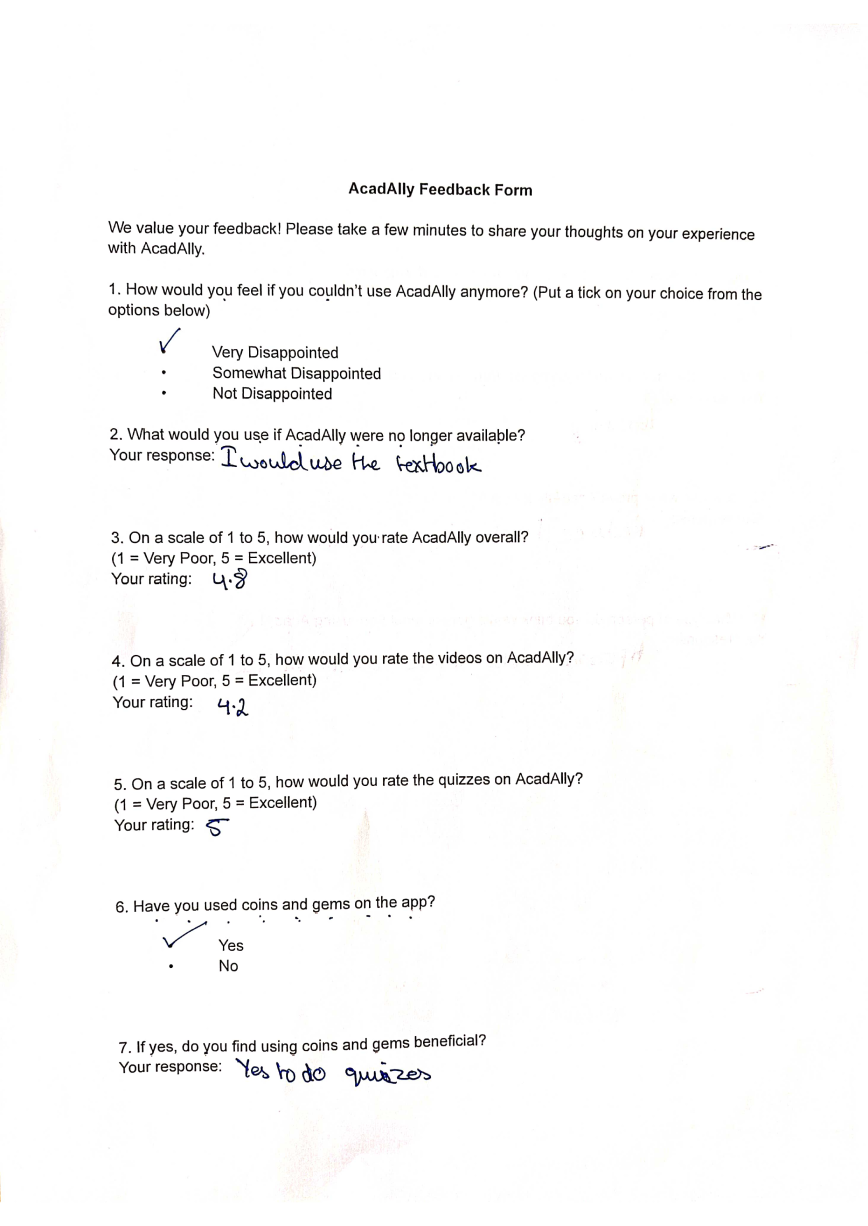 AcadAlly Feedback Form
We value your feedback! Please take a few minutes to share your thoughts on your experience
with AcadAlly.
1. How would you feel if you couldn't use AcadAlly anymore? (Put a tick on your choice from the
options below)
✓ Very Disappointed
• Somewhat Disappointed
• Not Disappointed
2. What would you use if AcadAlly were no longer available?
Your response: I would use the textbook
3. On a scale of 1 to 5, how would you rate AcadAlly overall?
(1 = Very Poor, 5 = Excellent)
Your rating: 4.8
4. On a scale of 1 to 5, how would you rate the videos on AcadAlly?
(1 = Very Poor, 5 = Excellent)
Your rating: 4.2
5. On a scale of 1 to 5, how would you rate the quizzes on AcadAlly?
(1 = Very Poor, 5 = Excellent)
Your rating: 5
6. Have you used coins and gems on the app?
✓ Yes
• No
7. If yes, do you find using coins and gems beneficial?
Your response: Yes to do quizzes